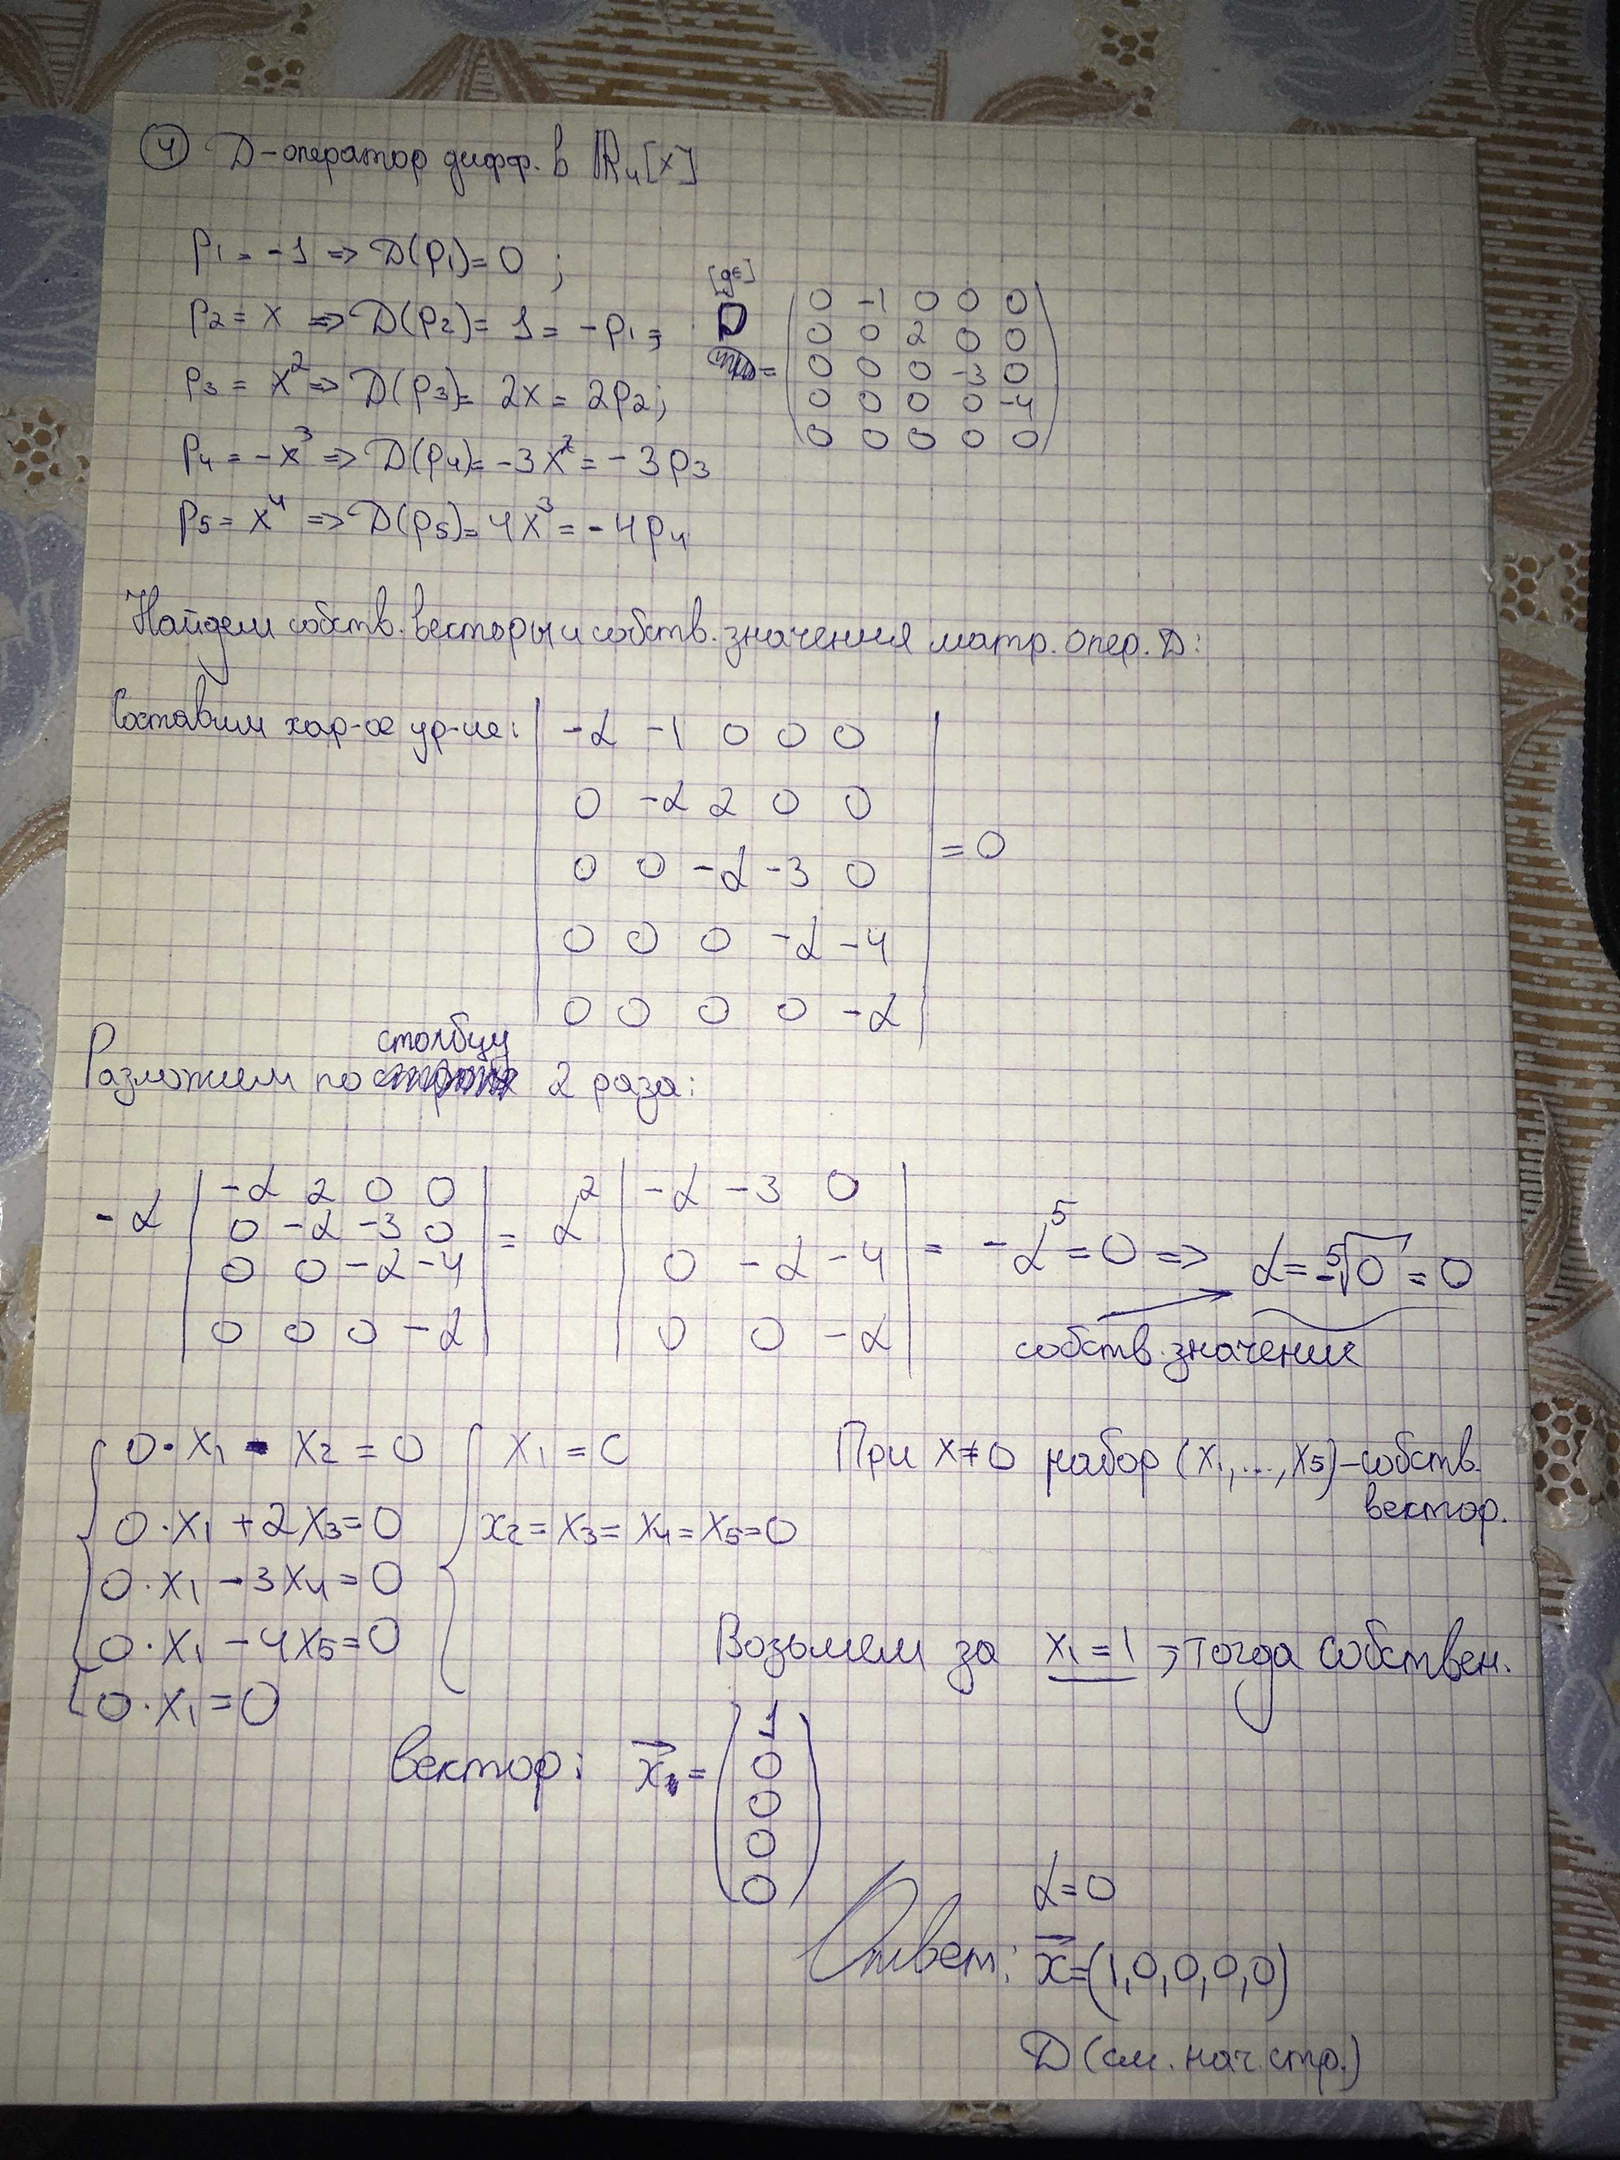 ④ D-оператор дифф. в ℝ₄[x]
p₁ = -1 => D(p₁) = 0 ;
p₂ = x => D(p₂) = 1 = -p₁ ;
p₃ = x² => D(p₃) = 2x = 2p₂ ;
p₄ = -x³ => D(p₄) = -3x² = -3p₃
p₅ = x⁴ => D(p₅) = 4x³ = -4p₄
D =
0 -1 0 0 0
0 0 2 0 0
0 0 0 -3 0
0 0 0 0 -4
0 0 0 0 0
Найдем собств. векторы и собств. значения матр. опер. D:
Составим хар-ое ур-ие:
-α -1 0 0 0
0 -α 2 0 0
0 0 -α -3 0
= 0
0 0 0 -α -4
0 0 0 0 -α
столбцу
Разложим по 2 раза:
-α | -α 2 0 0 | = α² | -α -3 0 | = -α⁵ = 0 => α = -⁵√0 = 0
0 -α -3 0
0 0 -α -4
0 0 0 -α
0 -α -4
0 0 -α
собств. значение
0·x₁ - x₂ = 0
0·x₁ + 2x₃ = 0
0·x₁ - 3x₄ = 0
0·x₁ - 4x₅ = 0
0·x₁ = 0
x₁ = C
x₂ = x₃ = x₄ = x₅ = 0
При x ≠ 0 набор (x₁, ..., x₅) - собств.
вектор.
Возьмем за x₁ = 1, тогда собствен.
вектор: x⃗ =
1
0
0
0
0
α = 0
Ответ: x⃗ = (1, 0, 0, 0, 0)
D (см. нач. стр.)